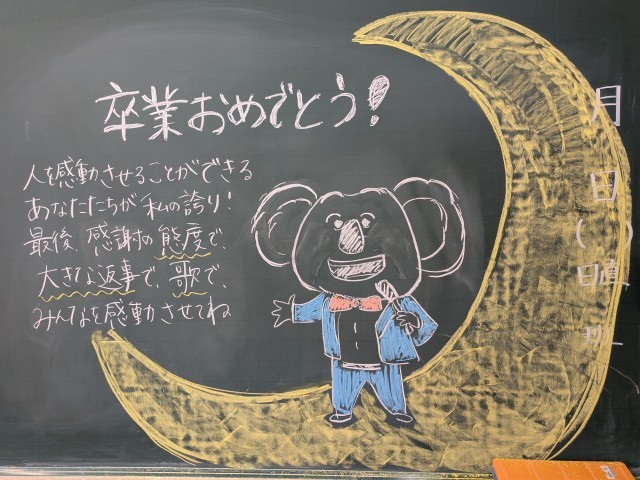 卒業おめでとう！
人を感動させることができる
あなたたちが私の誇り！
最後、感謝の態度で、
大きな返事で、歌で、
みんなを感動させてね
月
日
(
)